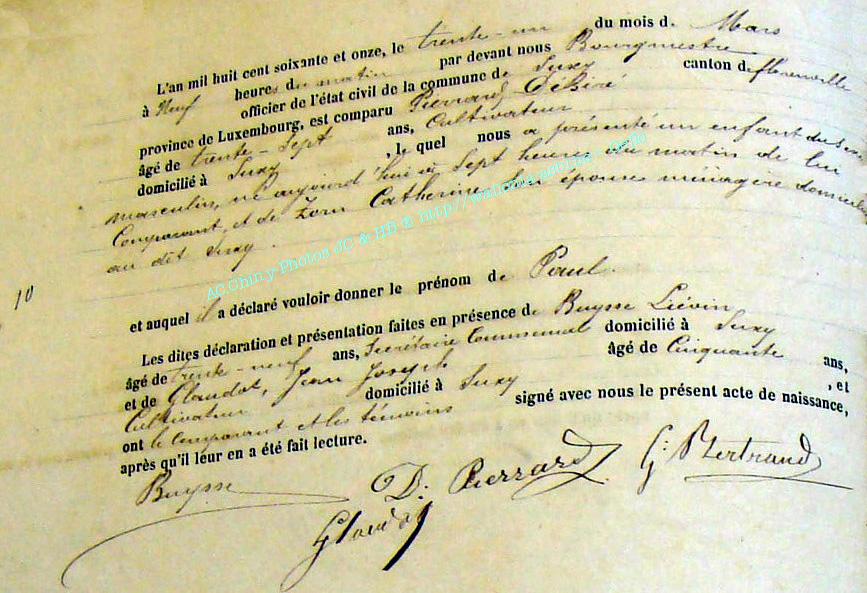 L'an mil huit cent soixante et onze, le trente-un du mois d. Mars
à Neuf heures du matin par devant nous Bourgmestre
officier de l'état civil de la commune de Suxy canton de florenville
province de Luxembourg, est comparu Pierrard Désiré
âgé de trente-Sept ans, Cultivateur
domicilié à Suxy , le quel nous a présenté un enfant du sexe
masculin, né aujourd'hui à Sept heures du matin de lui
Comparant, et de Zorn Catherine son épouse ménagère domiciliée
au dit Suxy.
10
et auquel il a déclaré vouloir donner le prénom de Paul.
Les dites déclaration et présentation faites en présence de Buysse Liévin
âgé de trente-neuf ans, Secrétaire Communal domicilié à Suxy
et de Glaudot, Jean Joseph âgé de Cinquante ans,
Cultivateur domicilié à Suxy , et
ont le Comparant et les témoins signé avec nous le présent acte de naissance,
après qu'il leur en a été fait lecture.
Buysse D. Pierrard G. Bertrand
Glaudot
AC Chiny Photos JC & HB @ http://